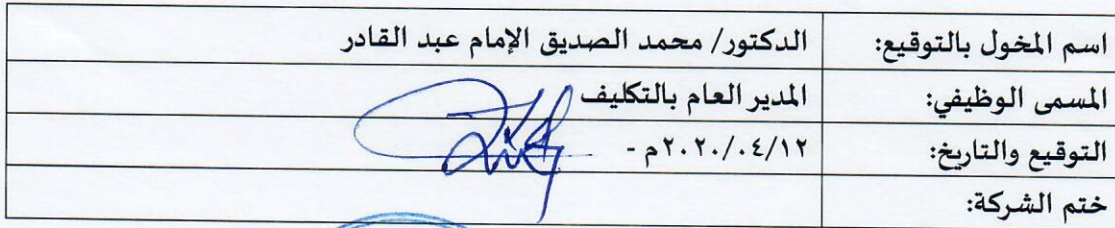 اسم المخول بالتوقيع: الدكتور/ محمد الصديق الإمام عبد القادر
المسمى الوظيفي: المدير العام بالتكليف
التوقيع والتاريخ: ٢٠٢٠/٠٤/١٢م -
ختم الشركة: